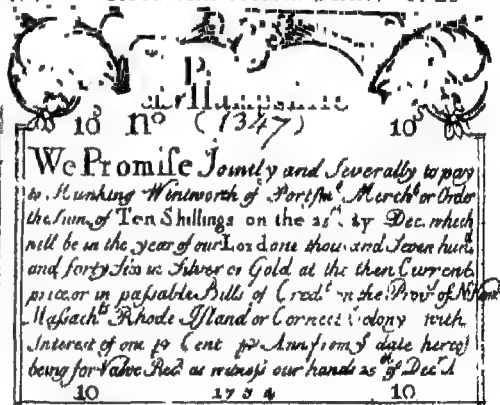 10 Nº (1347) 10
We Promise Jointly and Severally to pay
to Hunking Wentworth of Portsmº Merchᵗ or Order
the Sum of Ten Shillings on the 25ᵗʰ Dec. which
will be in the year of our Lord one thousand Seven hunᵈ
and forty Six in Silver or Gold at the then Current
price or in passable Bills of Credᵗ on the Provˢ of N Hamp
Massachᵗˢ Rhode Island or Connect Colony with
Interest of one pr Cent pr Ann from yᵉ date hereof
being for Value Recᵈ as witness our hands 25ᵗʰ of Decʳ
10 1734 10